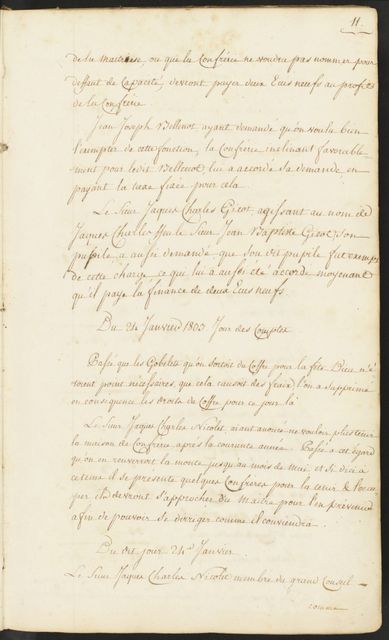 11.
de la Maitrise, ou que la Confrérie ne voudra pas nommer pour
deffaut de Capacité, devront payer deux Ecus neufs au profits
de la Confrérie
Jean Joseph Bellenot ayant demandé qu'on voulu bien
l'exempter de cette fonction, la Confrérie inclinant favorable-
ment pour ledit Bellenot, lui a accordé sa demande en
payant la taxe fixée pour cela.
Le Sieur Jaques Charles Gicot agissant au nom de
Jaques Charles ffeu le Sieur Jean Baptiste Gicot, son
pupile, a aussi demandé que son dit pupile fut exempt
de cette charge, ce que lui a aussi été accordé moyenant
qu'il paye la finance de deux Ecus neufs
Du 24 Janvier 1803 Jour des Comptes
Passé que les Gobelets qu'on sortoit du Coffre pour la fête Dieu n'é
toient point nécessaires, que cela causoit des fraix l'on a supprimé
en conséquence les droits du Coffre pour ce jour là
Le Sieur Jaques Charles Nicolet aiant anoncé ne vouloir plus tenir
la maison de Confrérie après la courente année. Passé a cet égard
qu'on en renverroit la monte jusqu'au mois de Mai, et si d'ici à
ce tems il se presente quelques Confrères pour la tenir & l'occu
per ils devront s'approcher du Maitre pour l'en prévenir
afin de pouvoir se diriger comme il conviendra.
Du dit jour 24e Janvier
Le Sieur Jaques Charles Nicolet membre du grand Conseil
comme